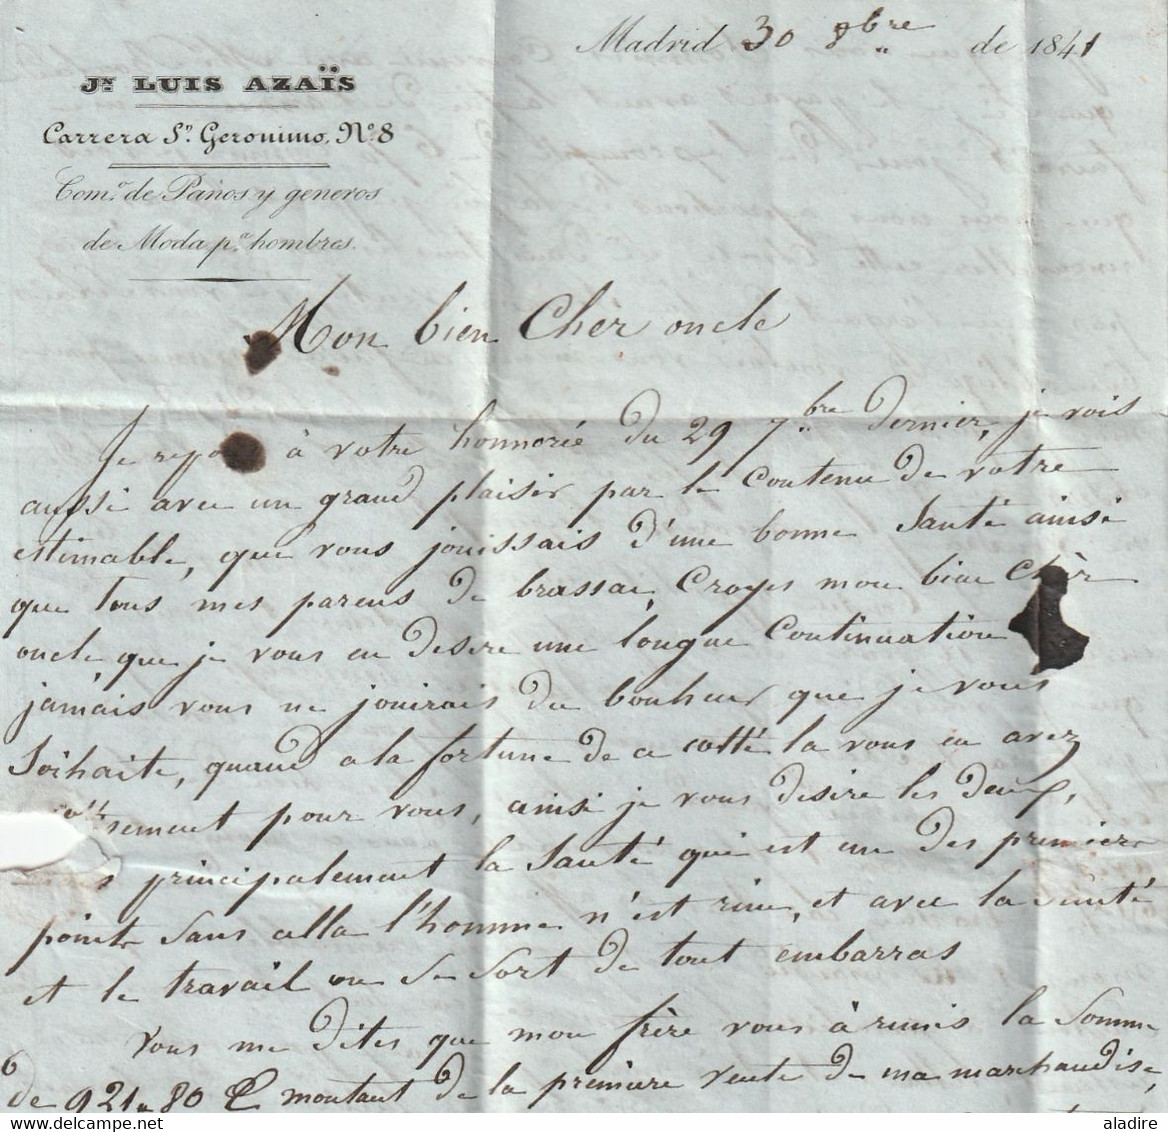 Madrid 30 8bre de 1841
Jn LUIS AZAÏS
Carrera Sn Geronimo, No 8
Como de Paños y generos
de Moda pa hombres.
Mon bien Cher oncle
Je repo à votre honnorée du 29 7bre dernier, je vois
aussi avec un grand plaisir par le contenu de votre
estimable, que vous jouissais d'une bonne Santé ainsi
que tous mes parens de brassac, Croyes mon bien Chèr
oncle que je vous en desire une longue Continuation
jamais vous ne jouirais du bonheur que je vous
Soihaite, quand a la fortune de a cotté la vous en avez
sement pour vous, ainsi je vous desire les deux,
principalement la Santé qui est un des premiers
points Sans ella l'homme n'est rien, et avec la Santé
et le travail on se Sort de tout embarras
Vous me dites que mon frère vous à remis la Somme
de 921 80 montant de la premiere vente de ma marchandise,
aladire